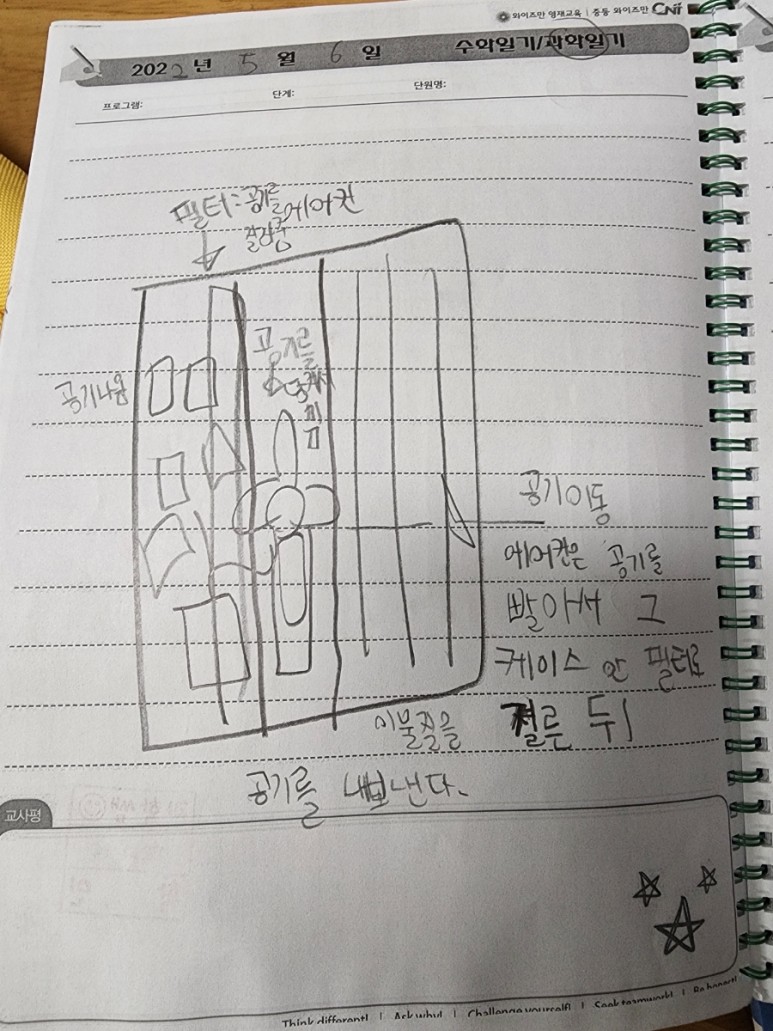 와이즈만 영재교육 | 중등 와이즈만 CNI
2022년 5월 6일 수학일기/과학일기
프로그램: 단계: 단원명:
필터:공기를
걸러줌
에어컨
공기를
공기나옴
공기이동
에어컨은 공기를
빨아서 그
케이스 안 필터로
이물질을 걸른 뒤
공기를 내보낸다.
교사평
Think different! | Ask why! | Challenge yourself! | Seek teamwork! | Be honest!